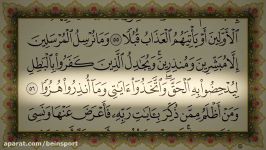 الْأَوَّلِينَ أَوْ يَأْتِيَهُمُ الْعَذَابُ قُبُلًا ٥٥ وَمَا نُرْسِلُ الْمُرْسَلِينَ
إِلَّا مُبَشِّرِينَ وَمُنذِرِينَ وَيُجَادِلُ الَّذِينَ كَفَرُوا بِالْبَاطِلِ
لِيُدْحِضُوا بِهِ الْحَقَّ وَاتَّخَذُوا آيَاتِي وَمَا أُنذِرُوا هُزُوًا ٥٦
وَمَنْ أَظْلَمُ مِمَّن ذُكِّرَ بِآيَاتِ رَبِّهِ فَأَعْرَضَ عَنْهَا وَنَسِيَ
aparat.com/beinsport